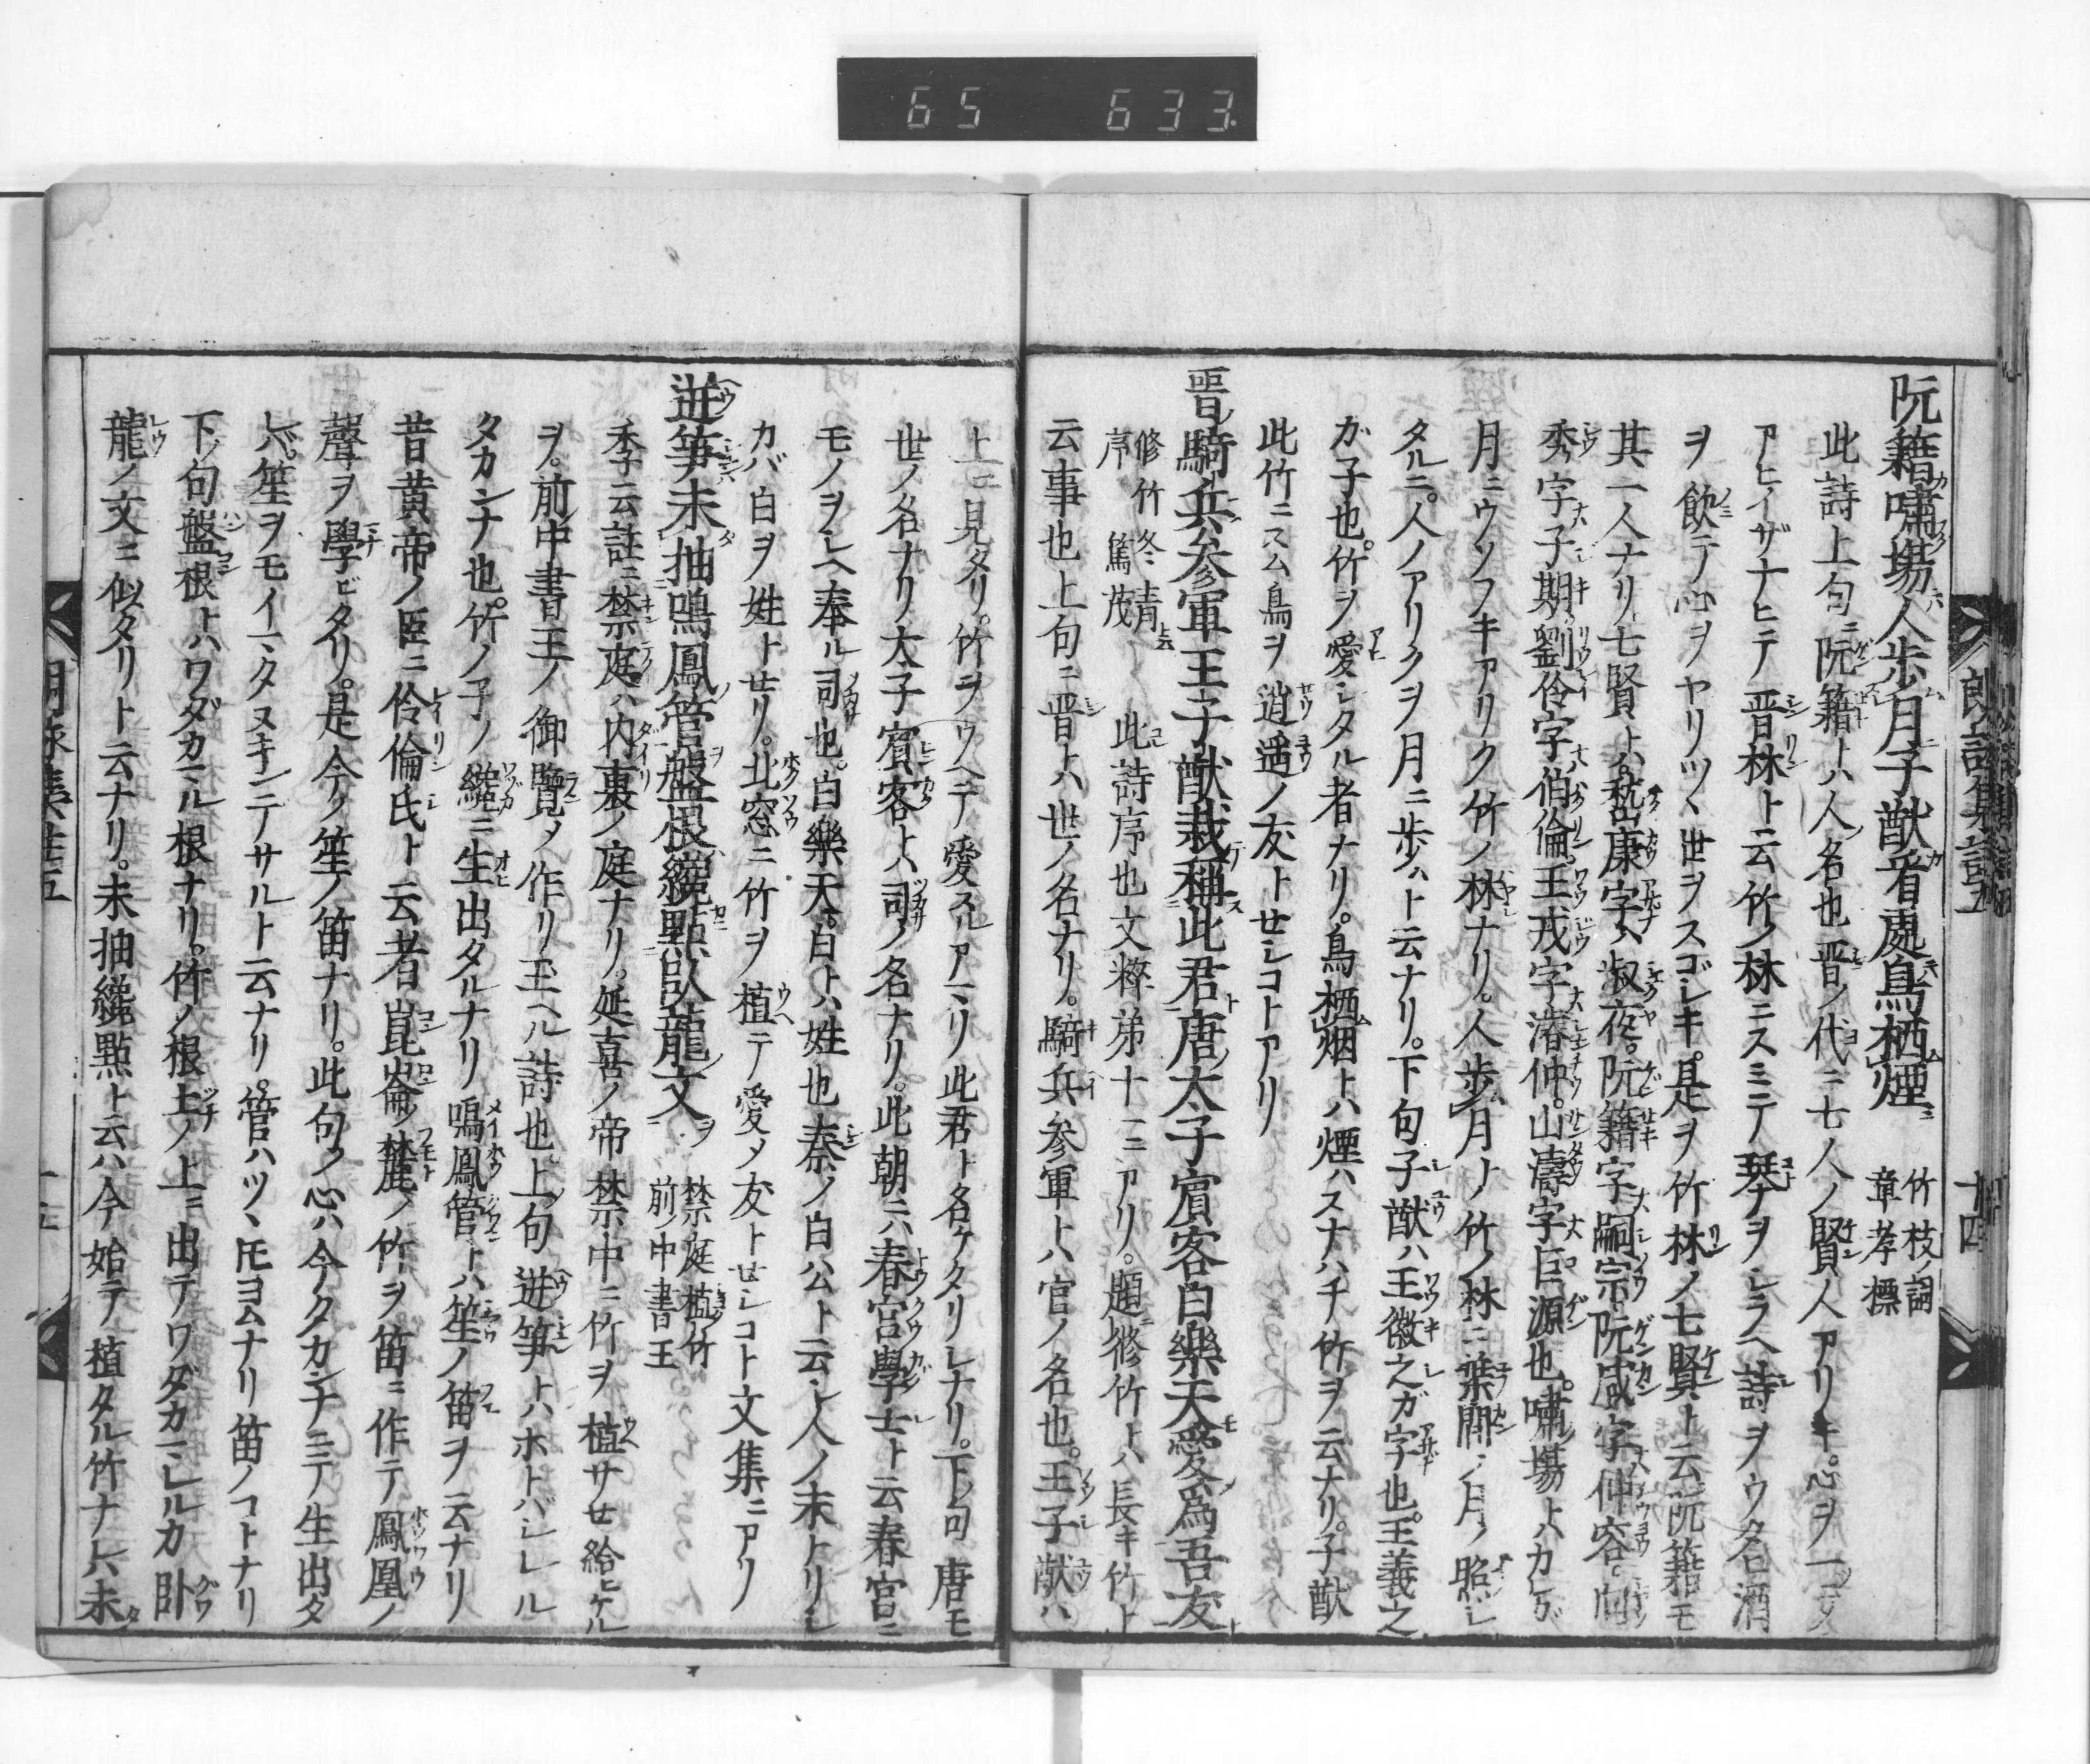 65 633
阮籍嘯場人歩月子猷看處鳥栖煙
竹枝ノ詞
章孝標
此詩上句ニ阮籍トハ人ノ名也晋ノ代ニ七人ノ賢人アリキ心ヲ一ニ
アヒイザナヒテ晋林ト云竹ノ林ニスミテ琴ナヲシラヘ詩ヲウタ酒
ヲ飲テノ心ヲヤリツヽ世ヲスゴシキ是ヲ竹林ノ七賢ト云阮籍モ
其一人ナリ七賢トハ嵆康字ハ叔夜阮籍字嗣宗阮咸字仲容向
秀字子期劉伶字伯倫王戎字濬仲山濤字巨源也嘯場トハカゲ
月ニウソフキアリク竹ノ林ナリ人歩月トノ竹ノ林ニ葉間ノ月ノ照シ
タルニ人ノアリクヲ月ニ歩ハト云ナリ下句子猷ハ王徽之ガ字也王義之
カ子也竹ヲ愛シタル者ナリ鳥栖烟トハ煙ハスナハチ竹ヲ云ナリ子猷
此竹ニスム鳥ヲ逍遥ノ友トせシコトアリ
晋騎兵参軍王子猷栽稱此君唐太子賓客白樂天愛為吾友
修竹冬青
序 篤茂
此詩序也文粹弟十一ニアリ題修竹トハ長キ竹ト
云事也上句ニ晋トハ世ノ名ナリ騎兵参軍トハ官ノ名也王子猷ハ
上ニ見タリ竹ヲウヘテ愛スルアマリ此君ト名ケタリシナリ下句唐モ
世ノ名ナリ太子賓客トハ司ノ名ナリ此朝ニハ春宮學士ト云春宮ニ
モノヲシヘ奉ル司也白樂天白トハ姓也秦ノ白公ト云シ人ノ末トリシ
カバ白ヲ姓トせリ北窓ニ竹ヲ植テ愛メ友トせシコト文集ニアリ
迸笋未抽鳴鳳管盤根纔點臥龍文
禁庭植竹
前ノ中書王
季云註ニ禁庭ハ内裏ノ庭ナリ延喜ノ帝禁中ニ竹ヲ植サせ給ヒケル
ヲ前中書王ノ御覽メ作リ玉ヘル詩也上ノ句迸笋トハホトバシレル
タカンナ也竹ノ子ノ纔ニ生出タルナリ鳴鳳管トハ笙ノ笛ヲ云ナリ
昔黄帝ノ臣ニ伶倫氏ト云者崑崙ノ麓ノ竹ヲ笛ニ作テ鳳凰ノ
聲ヲ學ビタリ是今ノ笙ノ笛ナリ此句ノ心ハ今タカンナニテ生出タ
レバ笙ヲモイマタヌキンテサルト云ナリ管ハツヽ圧ヨムナリ笛ノコトナリ
下ノ句盤根トハワダカマル根ナリ竹ノ根土ノ上ニ出テワダカマレルカ臥
龍ノ文ニ似タリト云ナリ未抽纔點ト云ハ今始テ植タル竹ナレハ未
朗詠集註五